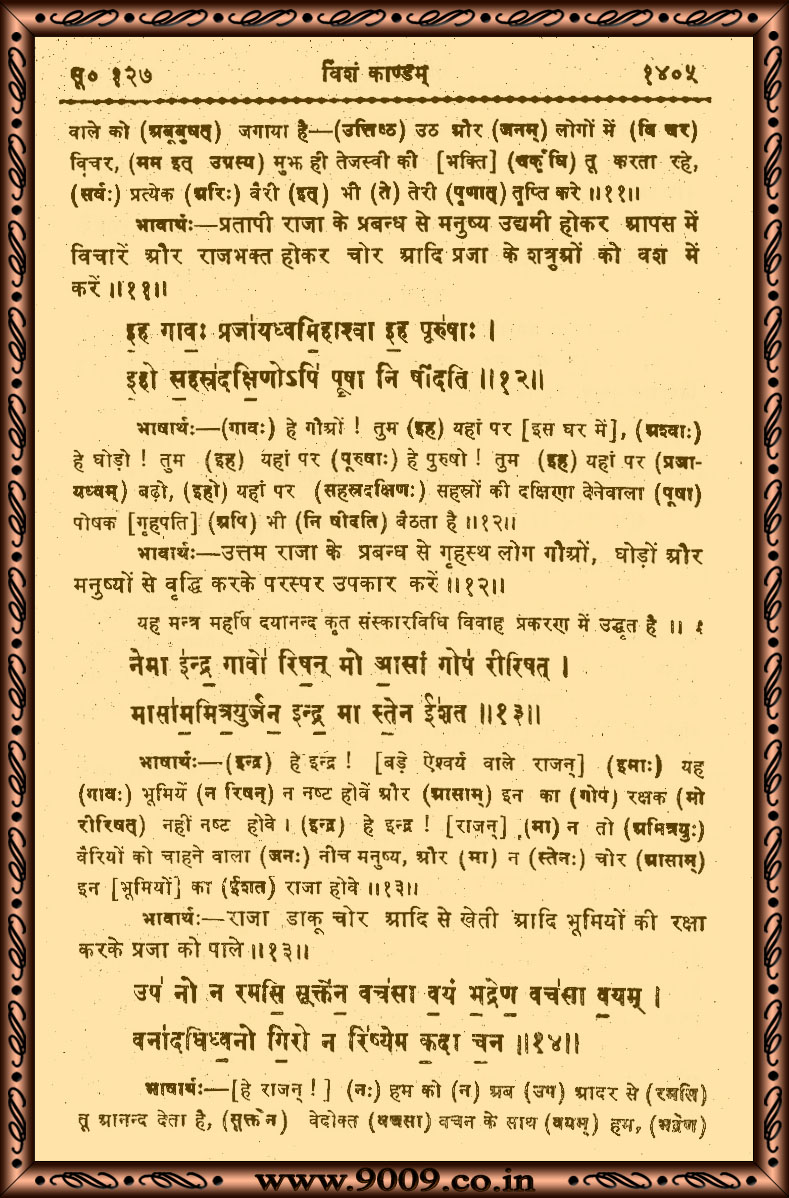 सू० १२७ विंशं काण्डम् १४०५
वाले को (अबूबुधत्) जगाया है—(उत्तिष्ठ) उठ और (जनम्) लोगों में (वि चर)
विचर, (मम इत् उग्रस्य) मुझ ही तेजस्वी की [भक्ति] (चर्कृधि) तू करता रहे,
(सर्वः) प्रत्येक (अरिः) वैरी (इत्) भी (ते) तेरी (पृणात्) तृप्ति करे ॥११॥
भावार्थः—प्रतापी राजा के प्रबन्ध से मनुष्य उद्यमी होकर आपस में
विचारें और राजभक्त होकर चोर आदि प्रजा के शत्रुओं को वश में
करें ॥११॥
इ॒ह गाव॒ः प्रजा॑यध्वमि॒हाश्वा इ॒ह पूरु॑षाः ।
इ॒हो स॒हस्र॑दक्षि॒णोऽपि॑ पू॒षा नि षी॑दति ॥१२॥
भाषार्थः—(गावः) हे गौओं ! तुम (इह) यहां पर [इस घर में], (अश्वाः)
हे घोड़ो ! तुम (इह) यहां पर (पूरुषाः) हे पुरुषो ! तुम (इह) यहां पर (प्रजा-
यध्वम्) बढ़ो, (इहो) यहां पर (सहस्रदक्षिणः) सहस्रों की दक्षिणा देनेवाला (पूषा)
पोषक [गृहपति] (अपि) भी (नि षीदति) बैठता है ॥१२॥
भावार्थः—उत्तम राजा के प्रबन्ध से गृहस्थ लोग गौओं, घोड़ों और
मनुष्यों से वृद्धि करके परस्पर उपकार करें ॥१२॥
यह मन्त्र महर्षि दयानन्द कृत संस्कारविधि विवाह प्रकरण में उद्धृत है ॥
नेमा इ॑न्द्र॒ गावो॑ रिष॒न् मो आ॒सां गोप॑ रीरिषत् ।
मासा॑म॒मित्र॒युर्जन॒ इन्द्र॒ मा स्ते॒न ई॑शत ॥१३॥
भाषार्थः—(इन्द्र) हे इन्द्र ! [बड़े ऐश्वर्य वाले राजन्] (इमाः) यह
(गावः) भूमियें (न रिषन्) न नष्ट होवें और (आसाम्) इन का (गोपं) रक्षक (मो
रीरिषत्) नहीं नष्ट होवे । (इन्द्र) हे इन्द्र ! [राजन्] (मा) न तो (अमित्रयुः)
वैरियों को चाहने वाला (जनः) नीच मनुष्य, और (मा) न (स्तेनः) चोर (आसाम्)
इन [भूमियों] का (ईशत) राजा होवे ॥१३॥
भावार्थः—राजा डाकू चोर आदि से खेती आदि भूमियों की रक्षा
करके प्रजा को पाले ॥१३॥
उप॑ नो न रमसि॒ सूक्ते॑न॒ वच॑सा व॒यं भ॒द्रेण॒ वच॑सा व॒यम् ।
वना॑दधिध्व॒नो गि॒रो न रि॑ष्येम क॒दा च॒न ॥१४॥
भाषार्थः—[हे राजन् !] (नः) हम को (न) अब (उप) आदर से (रमसि)
तू आनन्द देता है, (सूक्तेन) वेदोक्त (वचसा) वचन के साथ (वयम्) हम, (भद्रेण)
www.9009.co.in